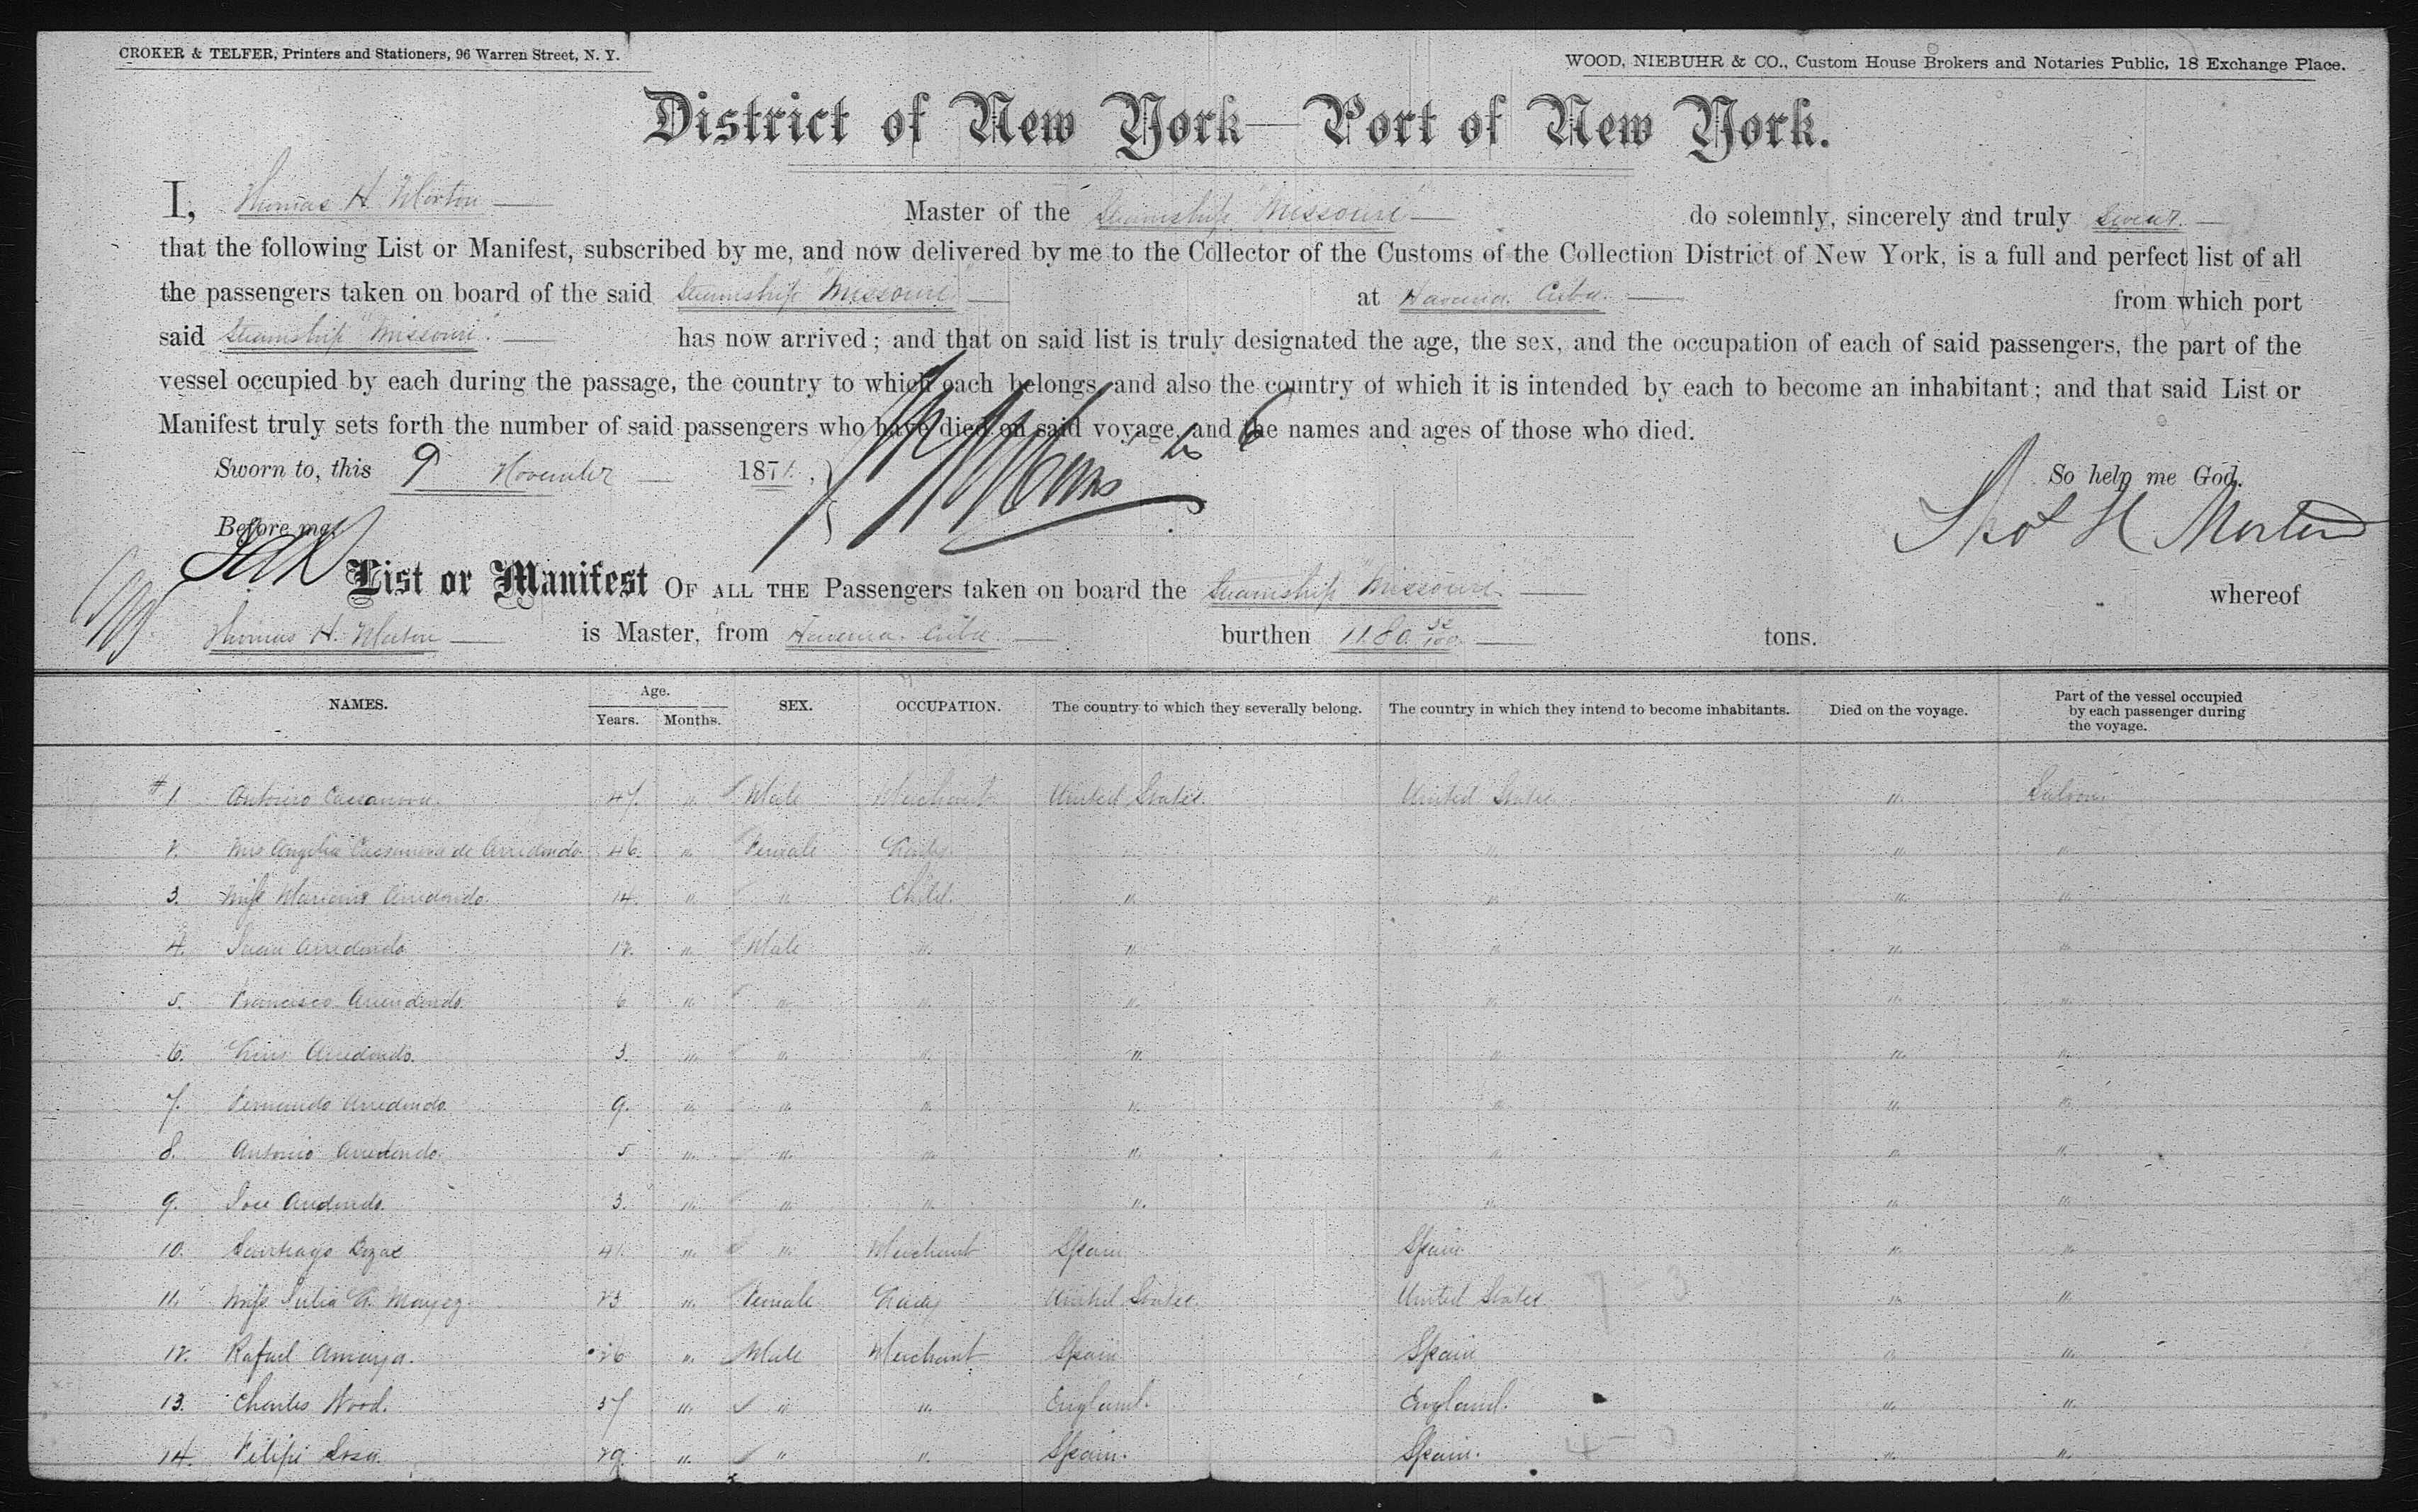 CROKER & TELFER, Printers and Stationers, 96 Warren Street, N. Y.
WOOD, NIEBUHR & CO., Custom House Brokers and Notaries Public, 18 Exchange Place.
District of New York—Port of New York.
I, Thomas H. Morton Master of the Steamship "Missouri" do solemnly, sincerely and truly Swear.
that the following List or Manifest, subscribed by me, and now delivered by me to the Collector of the Customs of the Collection District of New York, is a full and perfect list of all
the passengers taken on board of the said Steamship "Missouri" at Havana. Cuba. from which port
said Steamship "Missouri". has now arrived; and that on said list is truly designated the age, the sex, and the occupation of each of said passengers, the part of the
vessel occupied by each during the passage, the country to which each belongs, and also the country of which it is intended by each to become an inhabitant; and that said List or
Manifest truly sets forth the number of said passengers who have died on said voyage, and the names and ages of those who died.
Sworn to, this 9 November 1871. So help me God.
Before me, Thos H Morton
List or Manifest OF ALL THE Passengers taken on board the Steamship "Missouri" whereof
Thomas H. Morton is Master, from Havana. Cuba. burthen 1180 32/100 tons.
NAMES. Age. Years. Months. SEX. OCCUPATION. The country to which they severally belong. The country in which they intend to become inhabitants. Died on the voyage. Part of the vessel occupied by each passenger during the voyage.
#1 Antonio Cassanova. 47. " Male Merchant. United States. United States. " Saloon.
2. Mrs Angelia Cassanova de Arredondo. 46. " Female Lady " " " "
3. Miss Arredondo. 14. " " Child. " " " "
4. Juan Arredondo 12. " Male " " " " "
5. Francisco Arredondo. 6 " " " " " " "
6. Arredondo. 3. " " " " " " "
7. Fernando Arredondo. 9. " " " " " " "
8. Antonio Arredondo. 5 " " " " " " "
9. Jose Arredondo. 3. " " " " " " "
10. Santiago 41. " " Merchant Spain Spain " "
11. Miss Julia A. 23 " Female Lady United States. United States. " "
12. Rafael Amaya. 26 " Male Merchant Spain Spain " "
13. Charles Wood. 37 " " " England. England. " "
14. Filipi Sosa. 29. " " " Spain. Spain. " "